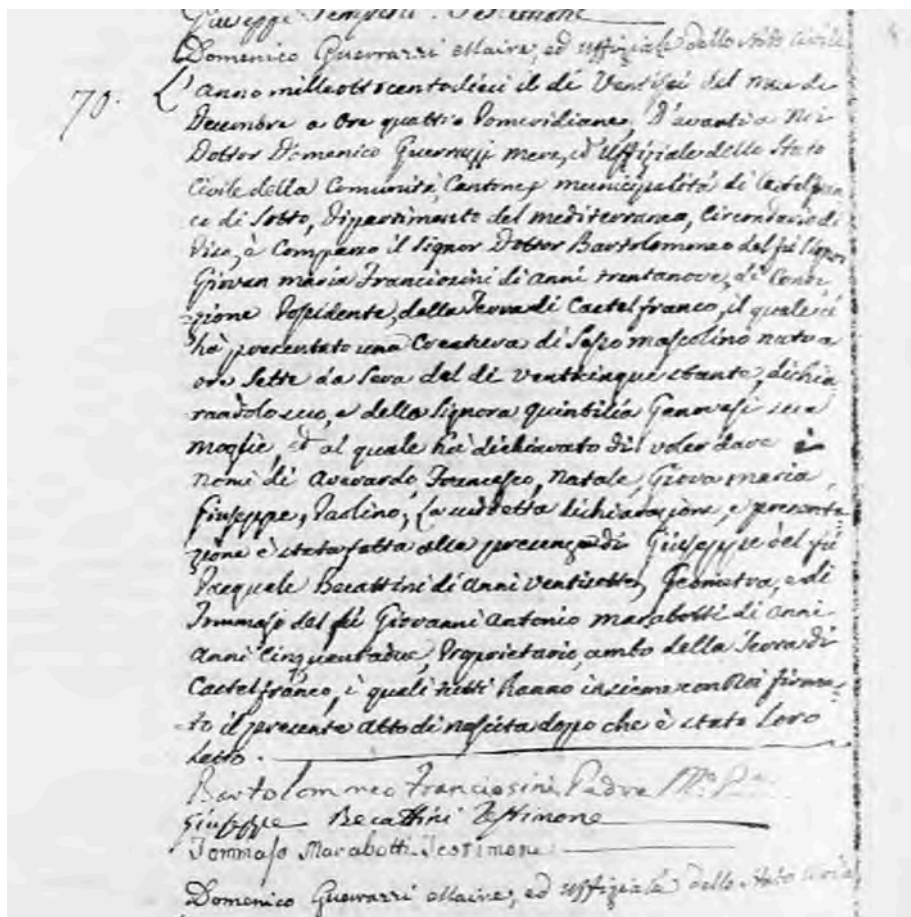 Giuseppe Testimone
Domenico Guerrazzi Maire, ed Uffiziale dello Stato Civile
70. L'anno milleottocentodieci il di Ventisei del Mese di
Decembre a Ore quattro Pomeridiane, D'avanti a Noi
Dottor Domenico Guerrazzi Mere, ed Uffiziale dello Stato
Civile della Comunità, Cantone, e municipalità di Castelfran
co di Sotto, Dipartimento del mediterraneo, Circondario di
Pisa, è Comparso il Signor Dottor Bartolommeo del fu Signor
Giovan maria Franciosini di anni trentanove, di Condi
=zione Possidente, della Terra di Castelfranco, il quale ci
hà presentato una Creatura di Sesso mascolino nato a
ore Sette da Sera del di Venticinque stante, dichia
randolo suo, e della Signora quintilia Genovesi sua
moglie, ed al quale hà dichiarato di voler dare i
nomi di Averardo, Francesco, Natale, Giova maria,
Giuseppe, Paolino, La suddetta dichiarazione, e presenta=
zione è stata fatta alla presenza di Giuseppe del fù
Pasquale Becattini di Anni Ventisette, Geometra, e di
Tommaso del fù Giovanni Antonio Marabotti di Anni
Anni Cinquantadue, Proprietario, ambo della Terra di
Castelfranco, i quali tutti hanno insieme con Noi firma=
=to il presente Atto di nascita dopo che è stato Loro
Letto.
Bartolommeo Franciosini Padre
Giuseppe Becattini Testimone
Tommaso Marabotti Testimone
Domenico Guerrazzi Maire, ed Uffiziale dello Stato Civile